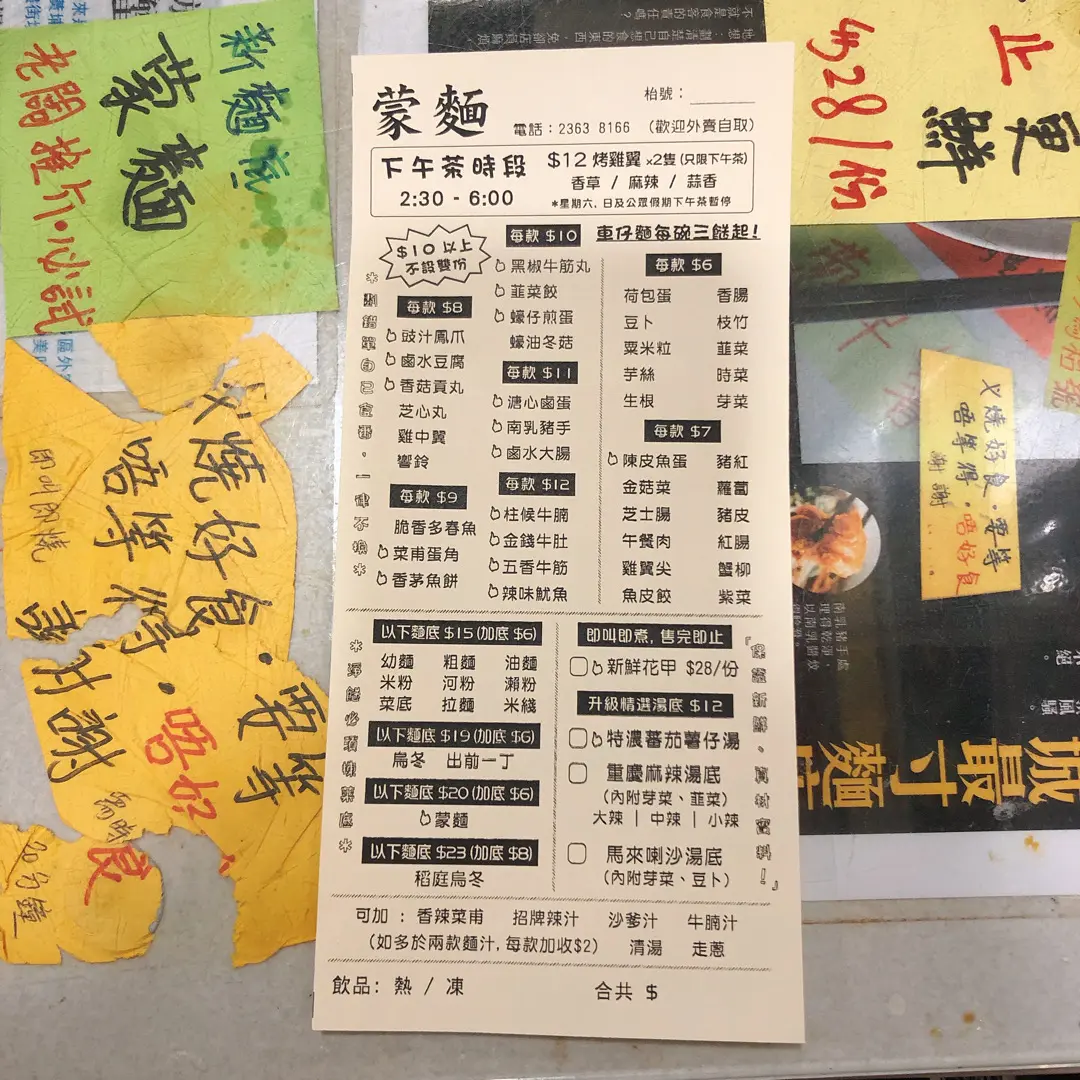 蒙麵
枱號：
電話：2363 8166 (歡迎外賣自取)
下午茶時段
2:30 - 6:00
$12 烤雞翼 x2隻 (只限下午茶)
香草 / 麻辣 / 蒜香
*星期六, 日及公眾假期下午茶暫停
$10 以上
不設雙份
每款 $8
豉汁鳳爪
鹵水豆腐
香菇貢丸
芝心丸
雞中翼
響鈴
每款 $9
脆香多春魚
菜甫蛋角
香茅魚餅
每款 $10
黑椒牛筋丸
韮菜餃
蠔仔煎蛋
蠔油冬菇
每款 $11
溏心鹵蛋
南乳豬手
鹵水大腸
每款 $12
柱候牛腩
金錢牛肚
五香牛筋
辣味魷魚
車仔麵每碗三餸起!
每款 $6
荷包蛋 香腸
豆卜 枝竹
粟米粒 韮菜
芋絲 時菜
生根 芽菜
每款 $7
陳皮魚蛋 豬紅
金菇菜 蘿蔔
芝士腸 豬皮
午餐肉 紅腸
雞翼尖 蟹柳
魚皮餃 紫菜
*淨餸必須揀菜底*
以下麵底 $15 (加底 $6)
幼麵 粗麵 油麵
米粉 河粉 瀨粉
菜底 拉麵 米綫
以下麵底 $19 (加底 $6)
烏冬 出前一丁
以下麵底 $20 (加底 $6)
蒙麵
以下麵底 $23 (加底 $8)
稻庭烏冬
即叫即煮, 售完即止
新鮮花甲 $28/份
升級精選湯底 $12
特濃蕃茄薯仔湯
重慶麻辣湯底
(內附芽菜、韮菜)
大辣 | 中辣 | 小辣
馬來喇沙湯底
(內附芽菜、豆卜)
可加 : 香辣菜甫 招牌辣汁 沙爹汁 牛腩汁
(如多於兩款麵汁, 每款加收$2) 清湯 走蔥
飲品: 熱 / 凍
合共 $
新麵底
蒙麵
老闆推介·必試
叉燒好食·要等
唔等得·唔好食
謝謝
即叫即燒
需時
20分鐘
$28/份
叉燒好食·要等
唔等得·唔好食
謝謝